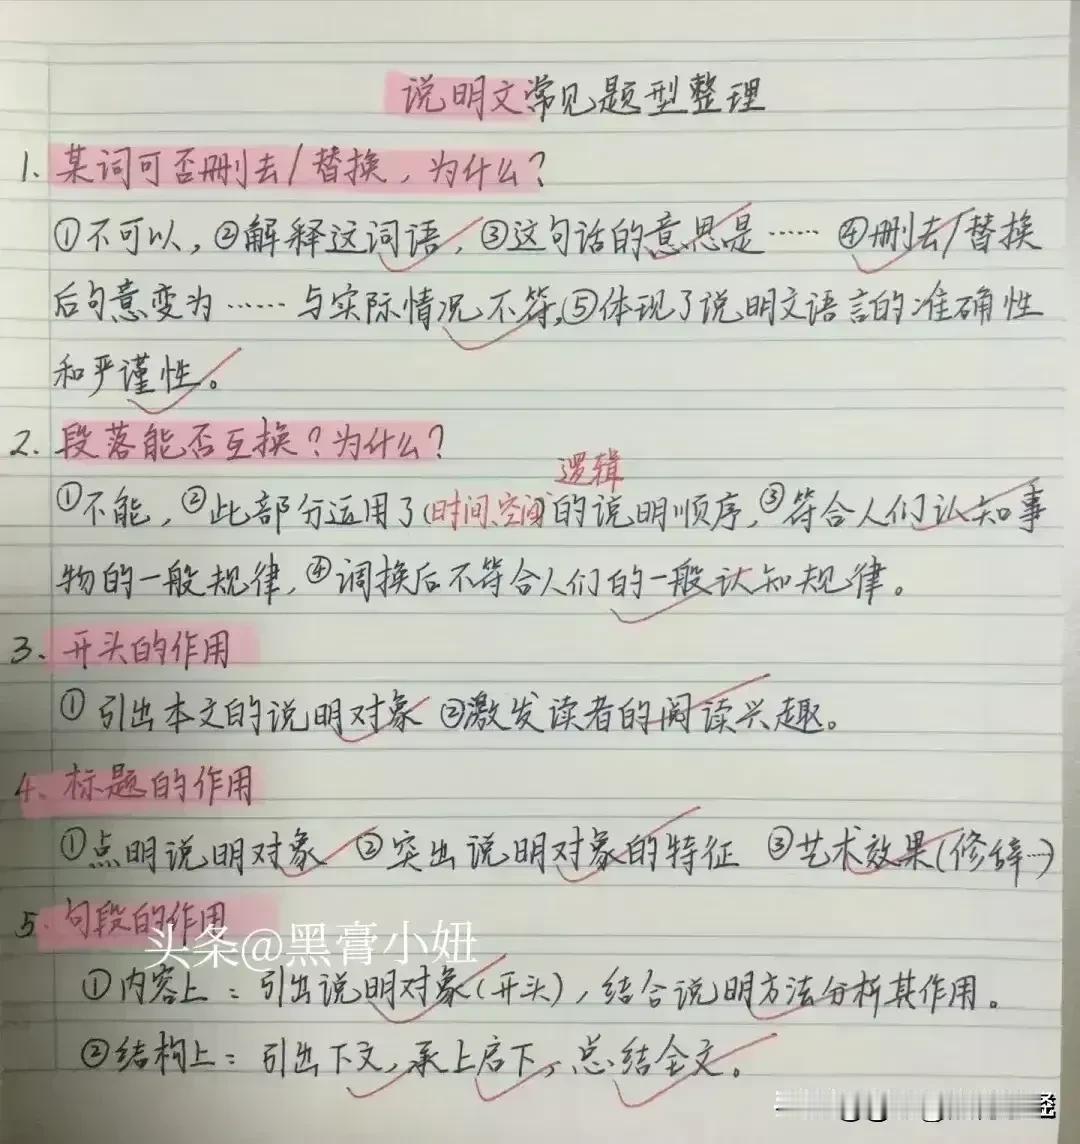 说明文常见题型整理
1. 某词可否删去/替换，为什么？
①不可以，②解释这词语，③这句话的意思是…… ④删去/替换
后句意变为……与实际情况不符，⑤体现了说明文语言的准确性
和严谨性。
2. 段落能否互换？为什么？
逻辑
①不能，②此部分运用了(时间、空间)的说明顺序，③符合人们认知事
物的一般规律，④调换后不符合人们的一般认知规律。
3、开头的作用
①引出本文的说明对象 ②激发读者的阅读兴趣。
4、标题的作用
①点明说明对象 ②突出说明对象的特征 ③艺术效果(修辞…)
5、句段的作用
头条@黑膏小妞
①内容上：引出说明对象(开头)，结合说明方法分析其作用。
②结构上：引出下文，承上启下，总结全文。